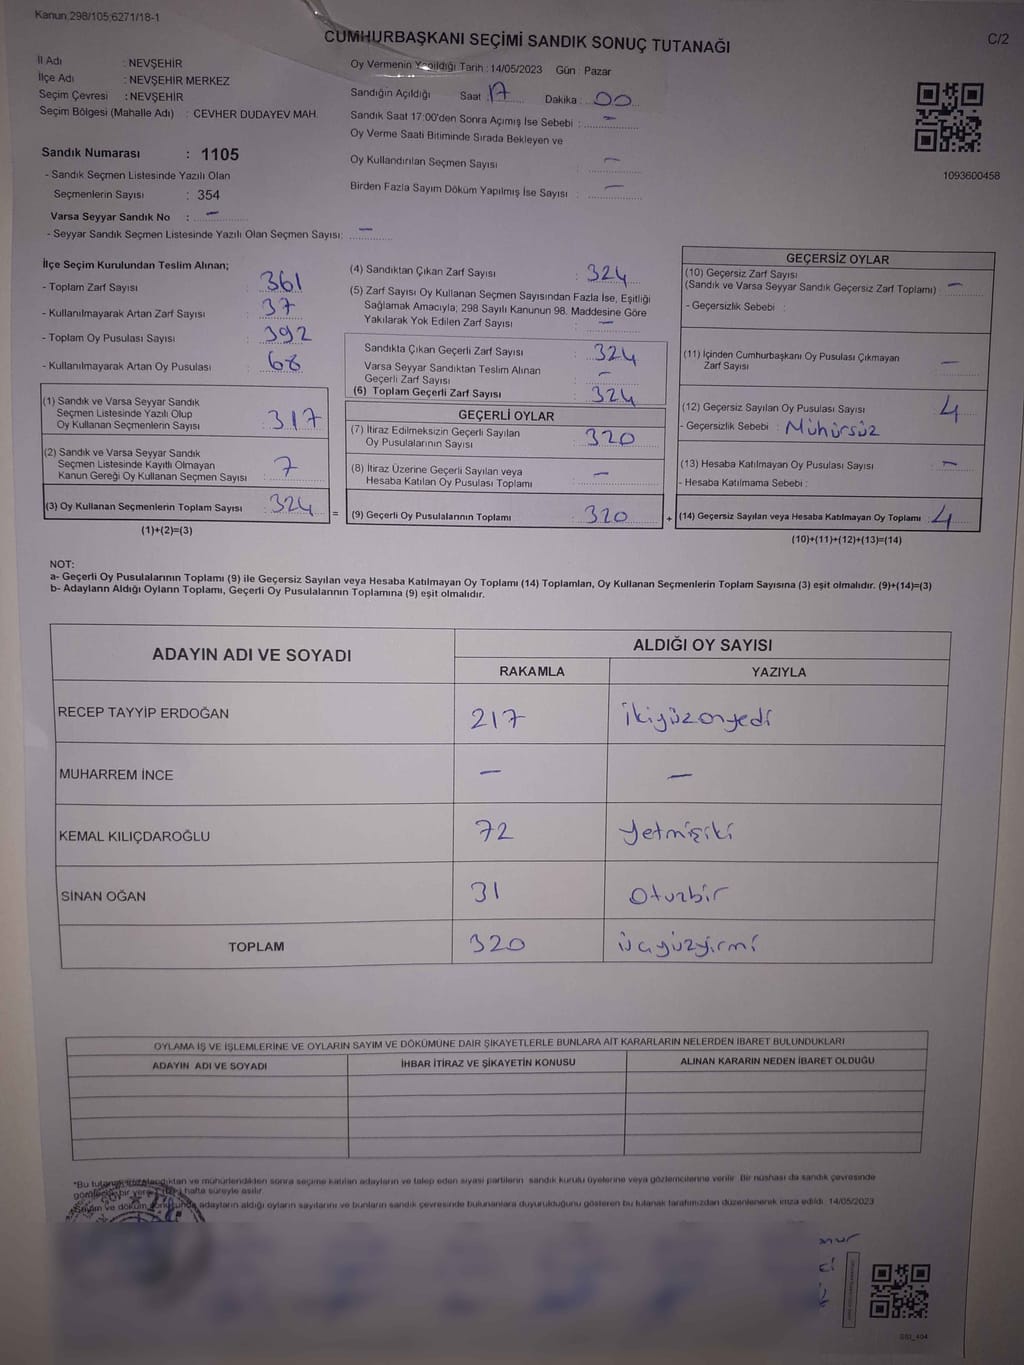 Kanun,298/105;6271/18-1
CUMHURBAŞKANI SEÇİMİ SANDIK SONUÇ TUTANAĞI
C/2
İl Adı : NEVŞEHİR
İlçe Adı : NEVŞEHİR MERKEZ
Seçim Çevresi : NEVŞEHİR
Seçim Bölgesi (Mahalle Adı) : CEVHER DUDAYEV MAH.
Sandık Numarası : 1105
- Sandık Seçmen Listesinde Yazılı Olan
Seçmenlerin Sayısı : 354
Varsa Seyyar Sandık No : –
- Seyyar Sandık Seçmen Listesinde Yazılı Olan Seçmen Sayısı: –
Oy Vermenin Yapıldığı Tarih : 14/05/2023 Gün : Pazar
Sandığın Açıldığı Saat : 17 Dakika : 00
Sandık Saat 17:00'den Sonra Açımış İse Sebebi : –
Oy Verme Saati Bitiminde Sırada Bekleyen ve
Oy Kullandırılan Seçmen Sayısı : –
Birden Fazla Sayım Döküm Yapılmış İse Sayısı : –
1093600458
İlçe Seçim Kurulundan Teslim Alınan;
- Toplam Zarf Sayısı : 361
- Kullanılmayarak Artan Zarf Sayısı : 37
- Toplam Oy Pusulası Sayısı : 392
- Kullanılmayarak Artan Oy Pusulası : 68
(1) Sandık ve Varsa Seyyar Sandık
Seçmen Listesinde Yazılı Olup
Oy Kullanan Seçmenlerin Sayısı : 317
(2) Sandık ve Varsa Seyyar Sandık
Seçmen Listesinde Kayıtlı Olmayan
Kanun Gereği Oy Kullanan Seçmen Sayısı : 7
(3) Oy Kullanan Seçmenlerin Toplam Sayısı : 324
(1)+(2)=(3)
(4) Sandıktan Çıkan Zarf Sayısı : 324
(5) Zarf Sayısı Oy Kullanan Seçmen Sayısından Fazla İse, Eşitliği
Sağlamak Amacıyla; 298 Sayılı Kanunun 98. Maddesine Göre
Yakılarak Yok Edilen Zarf Sayısı : –
Sandıkta Çıkan Geçerli Zarf Sayısı : 324
Varsa Seyyar Sandıktan Teslim Alınan
Geçerli Zarf Sayısı : –
(6) Toplam Geçerli Zarf Sayısı : 324
GEÇERLİ OYLAR
(7) İtiraz Edilmeksizin Geçerli Sayılan
Oy Pusulalarının Sayısı : 320
(8) İtiraz Üzerine Geçerli Sayılan veya
Hesaba Katılan Oy Pusulası Toplamı : –
= (9) Geçerli Oy Pusulalarının Toplamı : 320
GEÇERSİZ OYLAR
(10) Geçersiz Zarf Sayısı
(Sandık ve Varsa Seyyar Sandık Geçersiz Zarf Toplamı) : –
- Geçersizlik Sebebi :
(11) İçinden Cumhurbaşkanı Oy Pusulası Çıkmayan
Zarf Sayısı : –
(12) Geçersiz Sayılan Oy Pusulası Sayısı : 4
- Geçersizlik Sebebi : Mühürsüz
(13) Hesaba Katılmayan Oy Pusulası Sayısı : –
- Hesaba Katılmama Sebebi :
+ (14) Geçersiz Sayılan veya Hesaba Katılmayan Oy Toplamı : 4
(10)+(11)+(12)+(13)=(14)
NOT:
a- Geçerli Oy Pusulalarının Toplamı (9) ile Geçersiz Sayılan veya Hesaba Katılmayan Oy Toplamı (14) Toplamları, Oy Kullanan Seçmenlerin Toplam Sayısına (3) eşit olmalıdır. (9)+(14)=(3)
b- Adayların Aldığı Oyların Toplamı, Geçerli Oy Pusulalarının Toplamına (9) eşit olmalıdır.
ADAYIN ADI VE SOYADI
ALDIĞI OY SAYISI
RAKAMLA YAZIYLA
RECEP TAYYİP ERDOĞAN 217 ikiyüzonyedi
MUHARREM İNCE – –
KEMAL KILIÇDAROĞLU 72 yetmişiki
SİNAN OĞAN 31 otuzbir
TOPLAM 320 üçyüzyirmi
OYLAMA İŞ VE İŞLEMLERİNE VE OYLARIN SAYIM VE DÖKÜMÜNE DAİR ŞİKAYETLERLE BUNLARA AİT KARARLARIN NELERDEN İBARET BULUNDUKLARI
ADAYIN ADI VE SOYADI İHBAR İTİRAZ VE ŞİKAYETİN KONUSU ALINAN KARARIN NEDEN İBARET OLDUĞU
"Bu ve mühürlendikden sonra seçime katılan adayların ve talep eden siyasi partilerin sandık kurulu üyelerine veya gözlemcilerine verilir. Bir nüshası da sandık çevresinde
bir hafta süreyle asılır.
Sayım ve döküm adayların aldığı oyların sayılarını ve bunların sandık çevresinde bulunanlara duyurulduğunu gösteren bu tutanak tarafımızdan düzenlenerek imza edildi. 14/05/2023